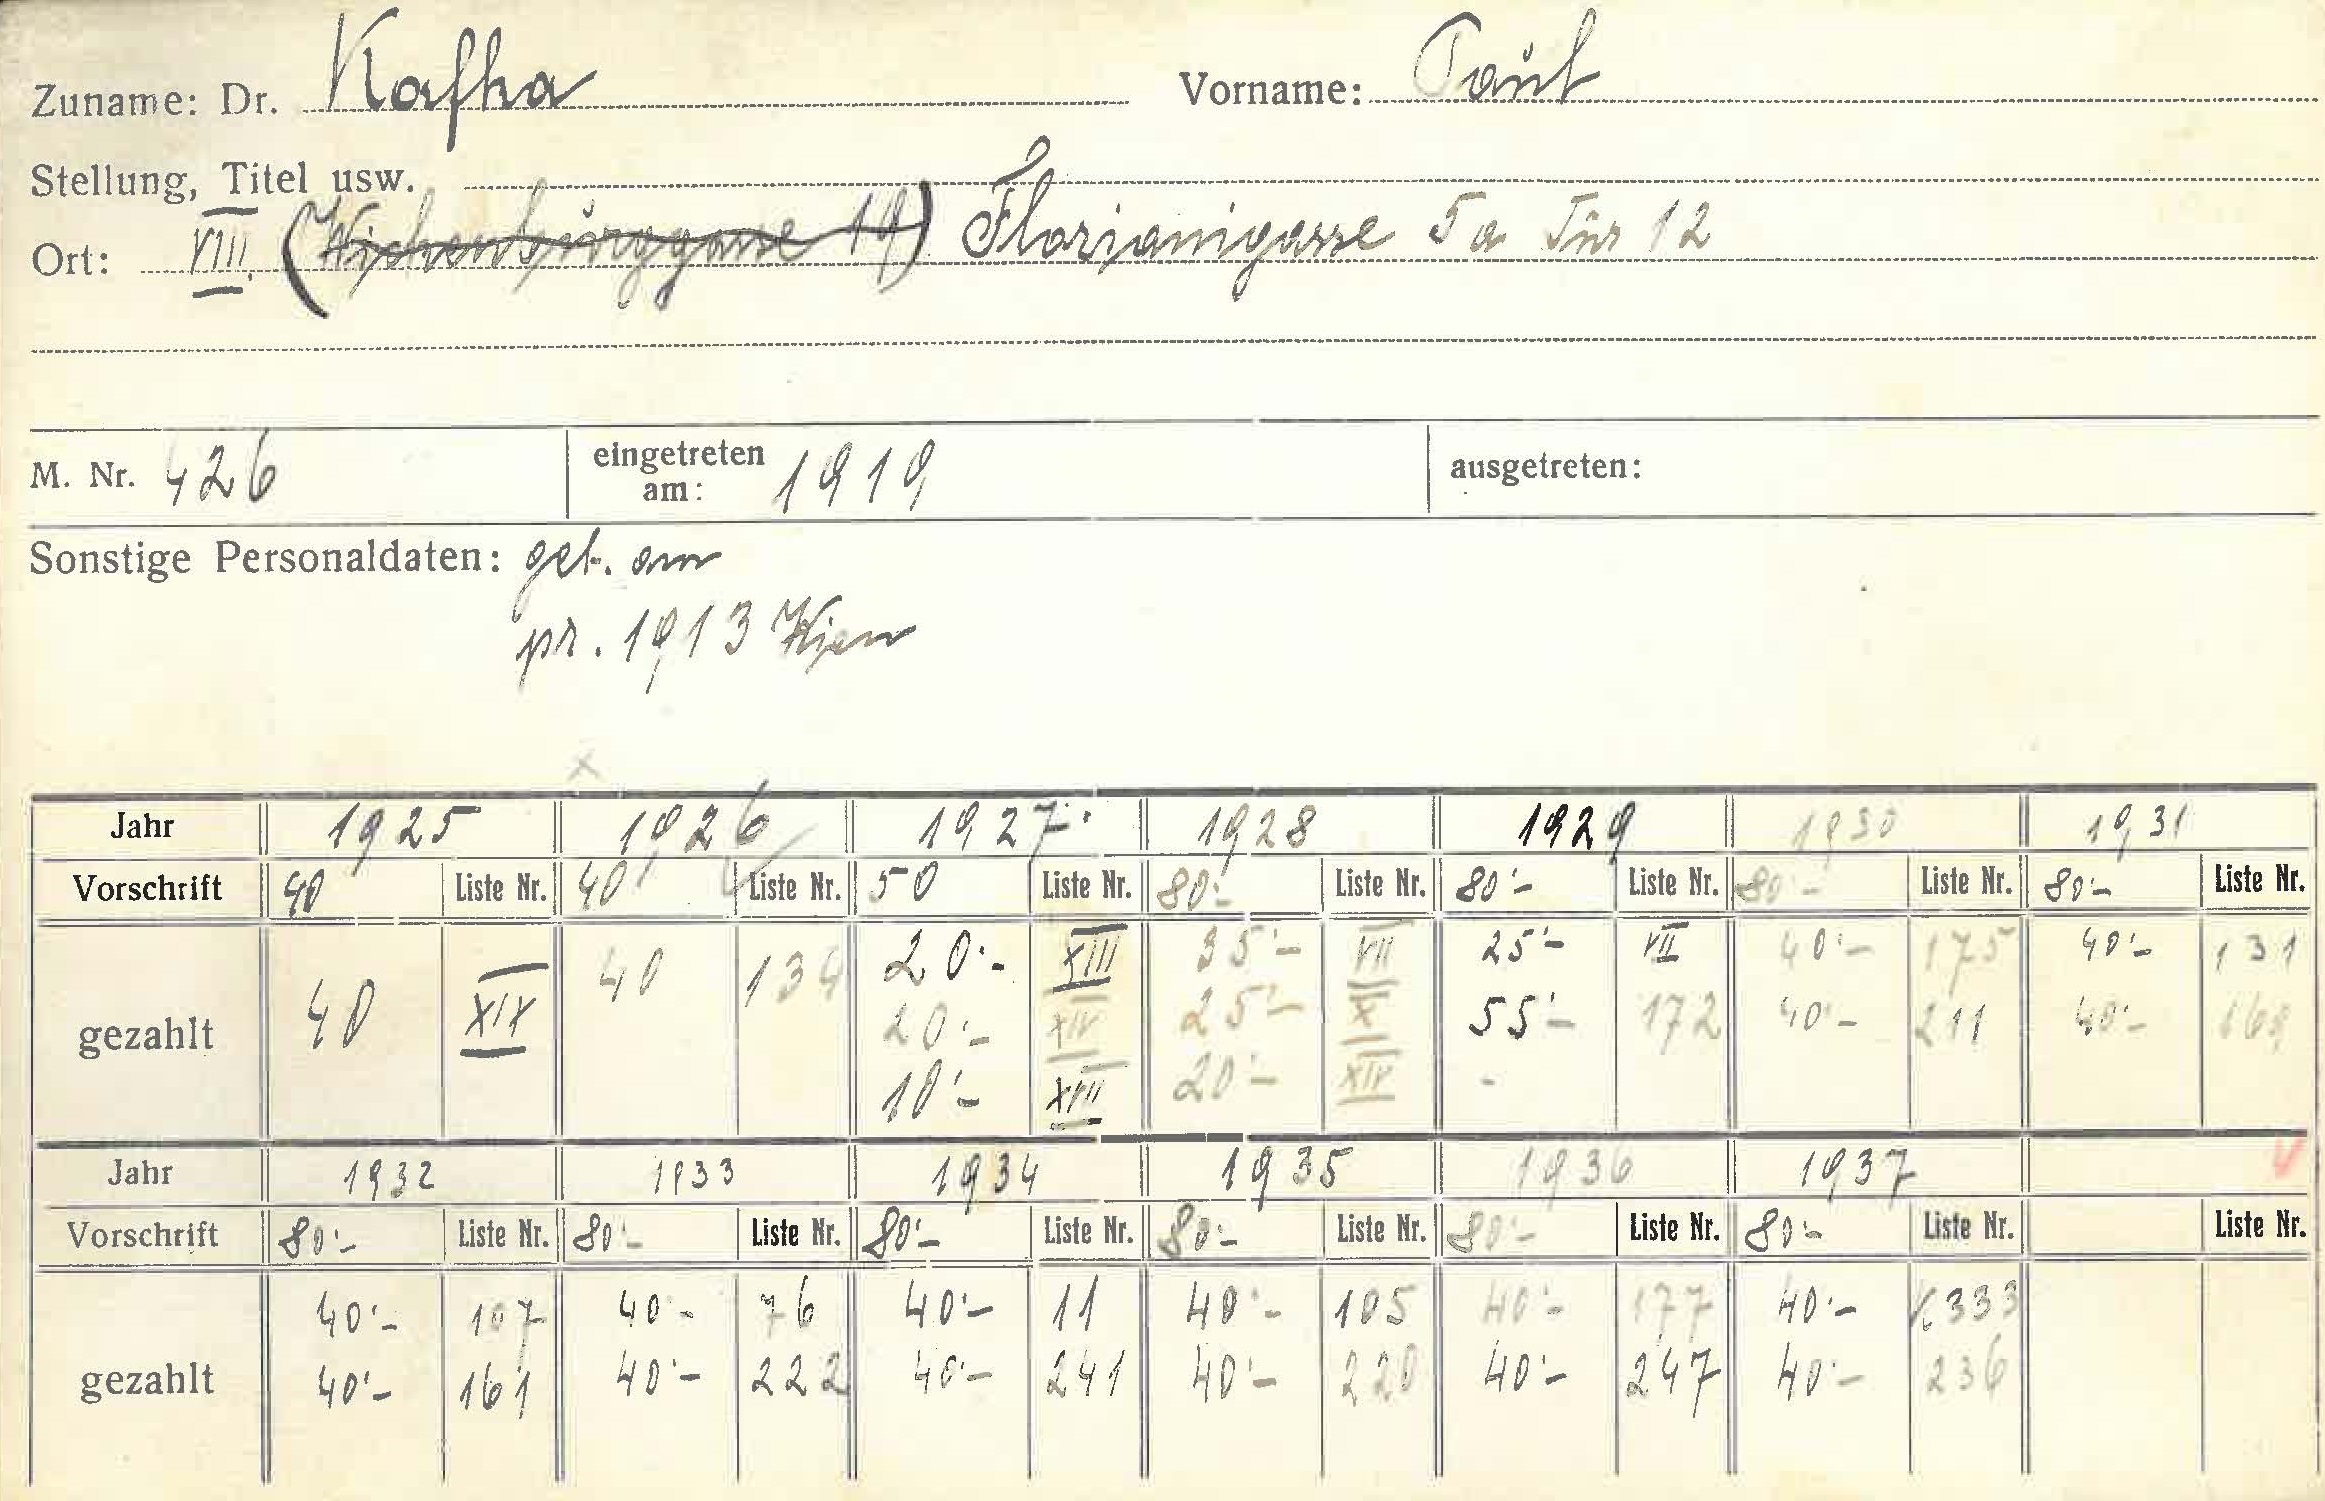 Zuname: Dr. Kafka Vorname: Paul
Stellung, Titel usw.
Ort: VIII. (Wickenburggasse 19) Florianigasse 5a Tür 12
M. Nr. 426 eingetreten am: 1919 ausgetreten:
Sonstige Personaldaten: geb. am
pr. 1913 Wien
Jahr 1925 1926 1927 1928 1929 1930 1931
Vorschrift 40 Liste Nr. 40 Liste Nr. 50 Liste Nr. 80.- Liste Nr. 80.- Liste Nr. 80.- Liste Nr. 80.- Liste Nr.
gezahlt 40 XIX 40 134 20.- XIII 35.- VII 25.- VII 40.- 175 40.- 131
20.- XIV 25.- X 55.- 172 40.- 211 40.- 169
10.- XVII 20.- XIV -
Jahr 1932 1933 1934 1935 1936 1937
Vorschrift 80.- Liste Nr. 80.- Liste Nr. 80.- Liste Nr. 80.- Liste Nr. 80.- Liste Nr. 80.- Liste Nr. Liste Nr.
gezahlt 40.- 107 40.- 76 40.- 11 40.- 105 40.- 177 40.- K333
40.- 161 40.- 222 40.- 241 40.- 220 40.- 247 40.- 236